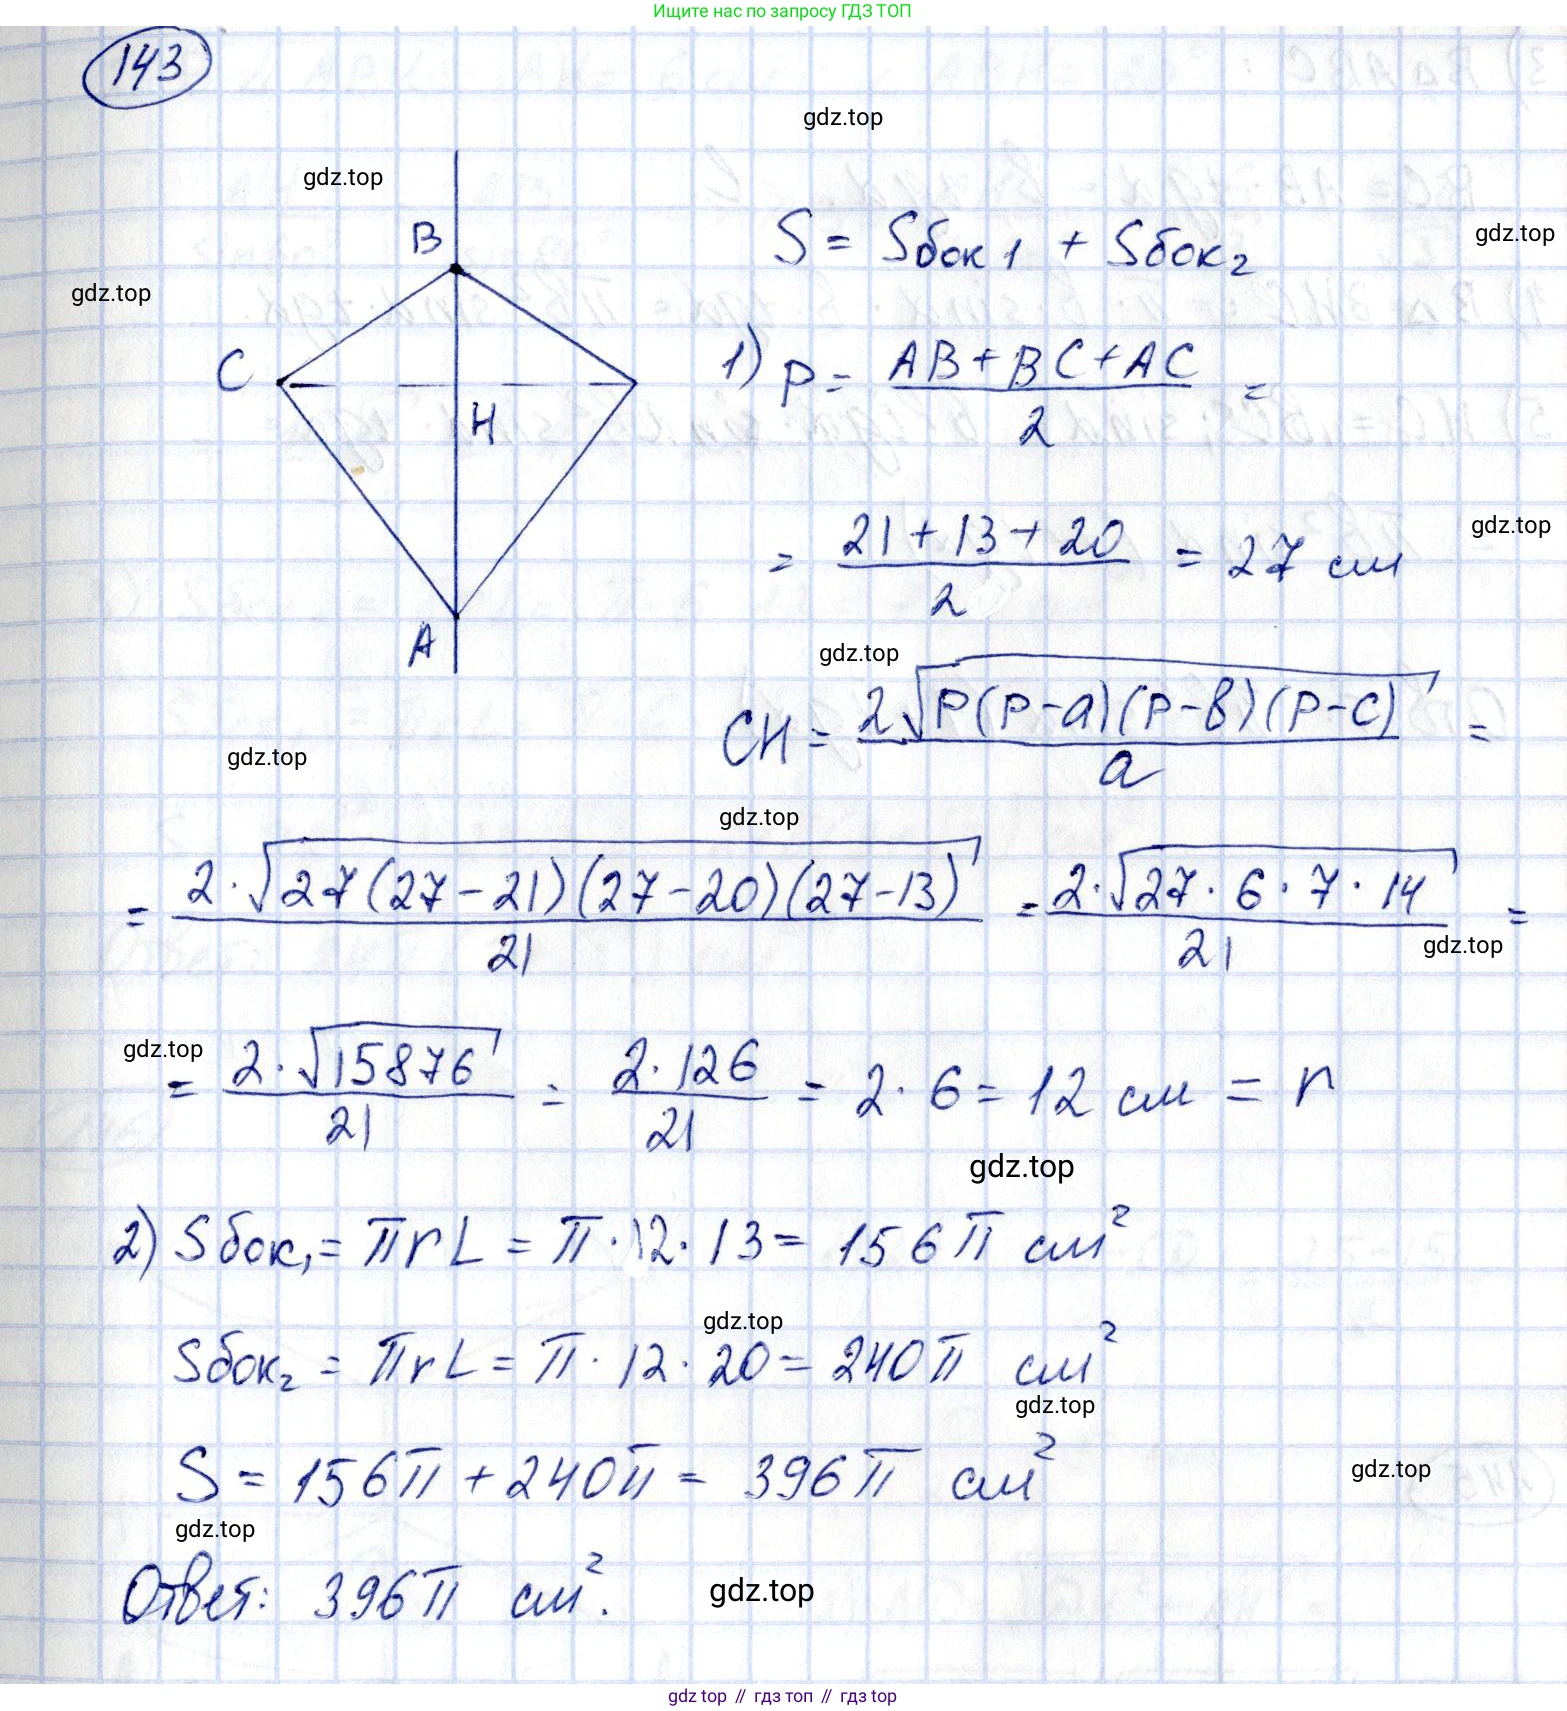 Ищите нас по запросу ГДЗ ТОП
143
gdz.top
gdz.top
B
S = Sбок 1 + Sбок₂
gdz.top
gdz.top
C
H
1) P = (AB + BC + AC)/2 =
= (21 + 13 + 20)/2 = 27 см
gdz.top
A
gdz.top
CH = 2√(P(P-a)(P-в)(P-c))/a =
gdz.top
gdz.top
= 2·√(27(27-21)(27-20)(27-13))/21 = 2·√(27·6·7·14)/21 =
gdz.top
gdz.top
= 2·√15876/21 = 2·126/21 = 2·6 = 12 см = r
gdz.top
2) Sбок₁ = πrL = π·12·13 = 156π см²
gdz.top
Sбок₂ = πrL = π·12·20 = 240π см²
gdz.top
S = 156π + 240π = 396π см²
gdz.top
gdz.top
Ответ: 396π см².
gdz.top
gdz top // гдз топ // гдз top